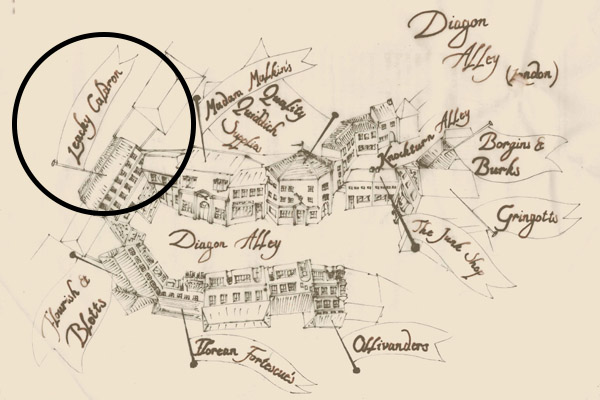 Diagon
Alley
(London)
Leaeky Caldron
Madam Malkin's
Quality
Quidditch
Supplies
Knockturn Alley
Borgins &
Burks
Gringotts
The Junk Shop
Diagon Alley
Flourish &
Blotts
Florean Fortescue's
Ollivanders